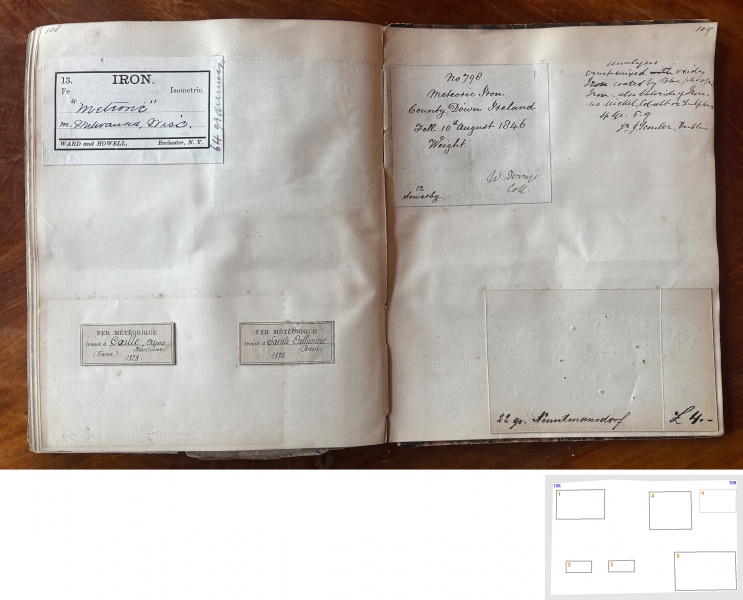 108
13. IRON.
Fe Isometric.
"Meteoric"
m. Milwaukee, Wisc.
WARD and HOWELL, Rochester, N. Y.
FER MÉTÉORIQUE
trouvé à Caille, Alpes
Maritimes
(France)
1828
FER MÉTÉORIQUE
trouvé à Sainte Catherine
(Brésil)
1876
109
No 798
Meteoric Iron
County Down Ireland
Fell 10th August 1846
Weight
W. Nevill
Coll.
12
Sowerby
analysis
crust mixed with oxides
Iron coated by
Iron - also chloride of Iron.
no Nickel, Cobalt or Sulphur
4 Gr. 5.9
Dublin
22 gr. Nenntmansdorf £ 4.-
108 109
1 4
2 3 5